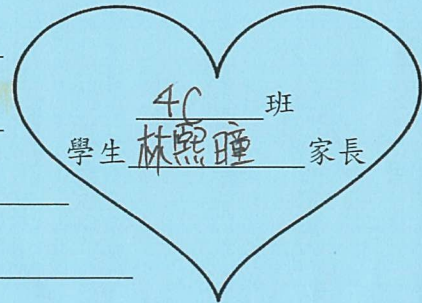 4C 班
學生 林熙曈 家長